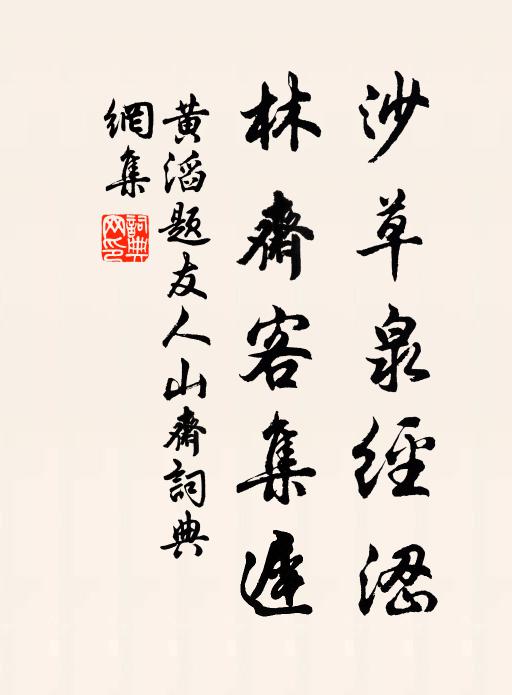 沙草泉經澀
林齋客集遲
黄滔题友人山齋詞典
網集
詞典网印